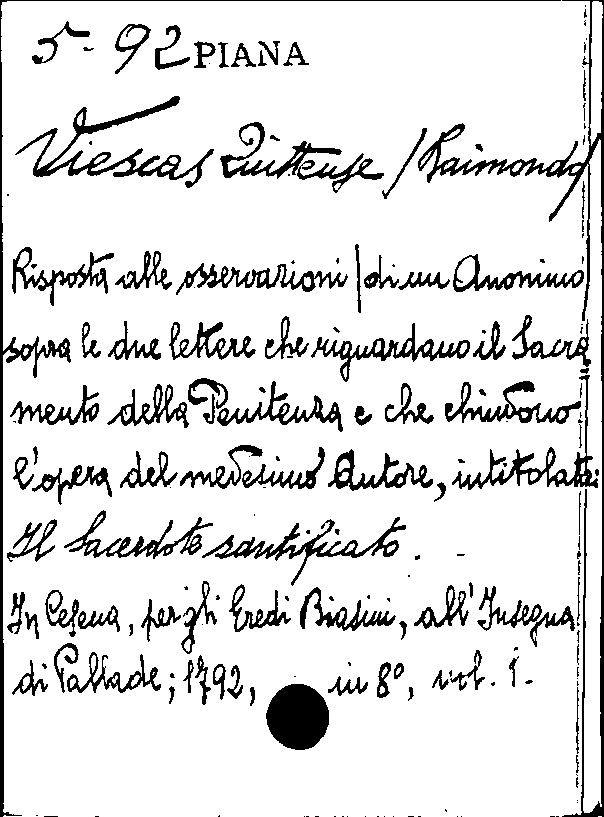 5-92 PIANA
Viescas Quittense /Raimondo/
Risposta alle osservazioni | di un Anonimo
sopra le due lettere che riguardano il Sacra
mento della Penitenza e che chiudono
l'opera del medesimo Autore, intitolata:
Il Sacerdote santificato. -
In Cesena, per gli Eredi Biasini, all'Insegna
di Pallade; 1792, in 8°, vol. 1.-